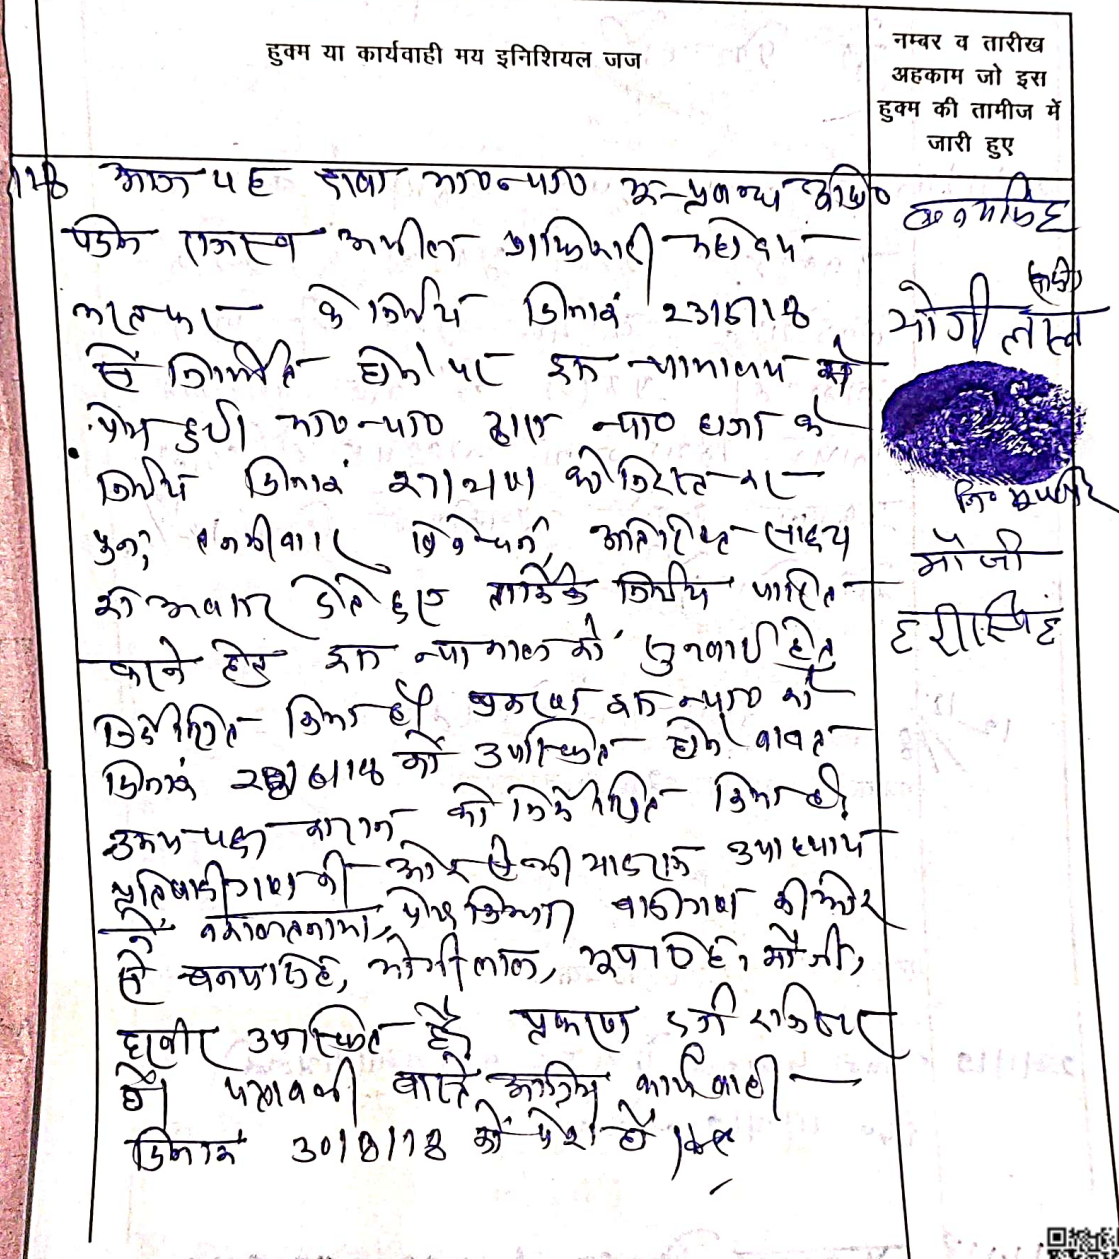 हुक्म या कार्यवाही मय इनिशियल जज
नम्बर व तारीख
अहकाम जो इस
हुक्म की तामीज में
जारी हुए
आज यह दावा मा० न्या० भू-प्रबन्ध अधि०
पदेन राजस्व अपील अधिकारी महोदय
के निर्णय दिनांक 23/5/18
से निर्णीत होने पर इस न्यायालय को
प्राप्त हुयी मा० न्या० द्वारा न्या० हाजा के
निर्णय दिनांक को निरस्त कर
पुनः तनकीवार विवेचन, अतिरिक्त साक्ष्य
का अवसर देते हुए तार्किक निर्णय पारित
करने हेतु इस न्यायालय को सुनवाई हेतु
निर्देशित किया है। प्रकरण इस न्या० को
दिनांक 28/6/18 को उपस्थित होने बाबत
उभय पक्षकारान को निर्देशित किया है।
प्रतिवादीगण की ओर से श्री उपाध्याय
ने वकालतनामा पेश किया। वादीगण की ओर
से बनयसिंह, योगीलाल, भूपसिंह, मौजी,
उपस्थित है। प्रकरण दर्ज रजिस्टर
हो। पत्रावली वास्ते अग्रिम कार्यवाही
दिनांक 30/8/18 को पेश हो।
योगी लाल
मौजी
हरीसिंह